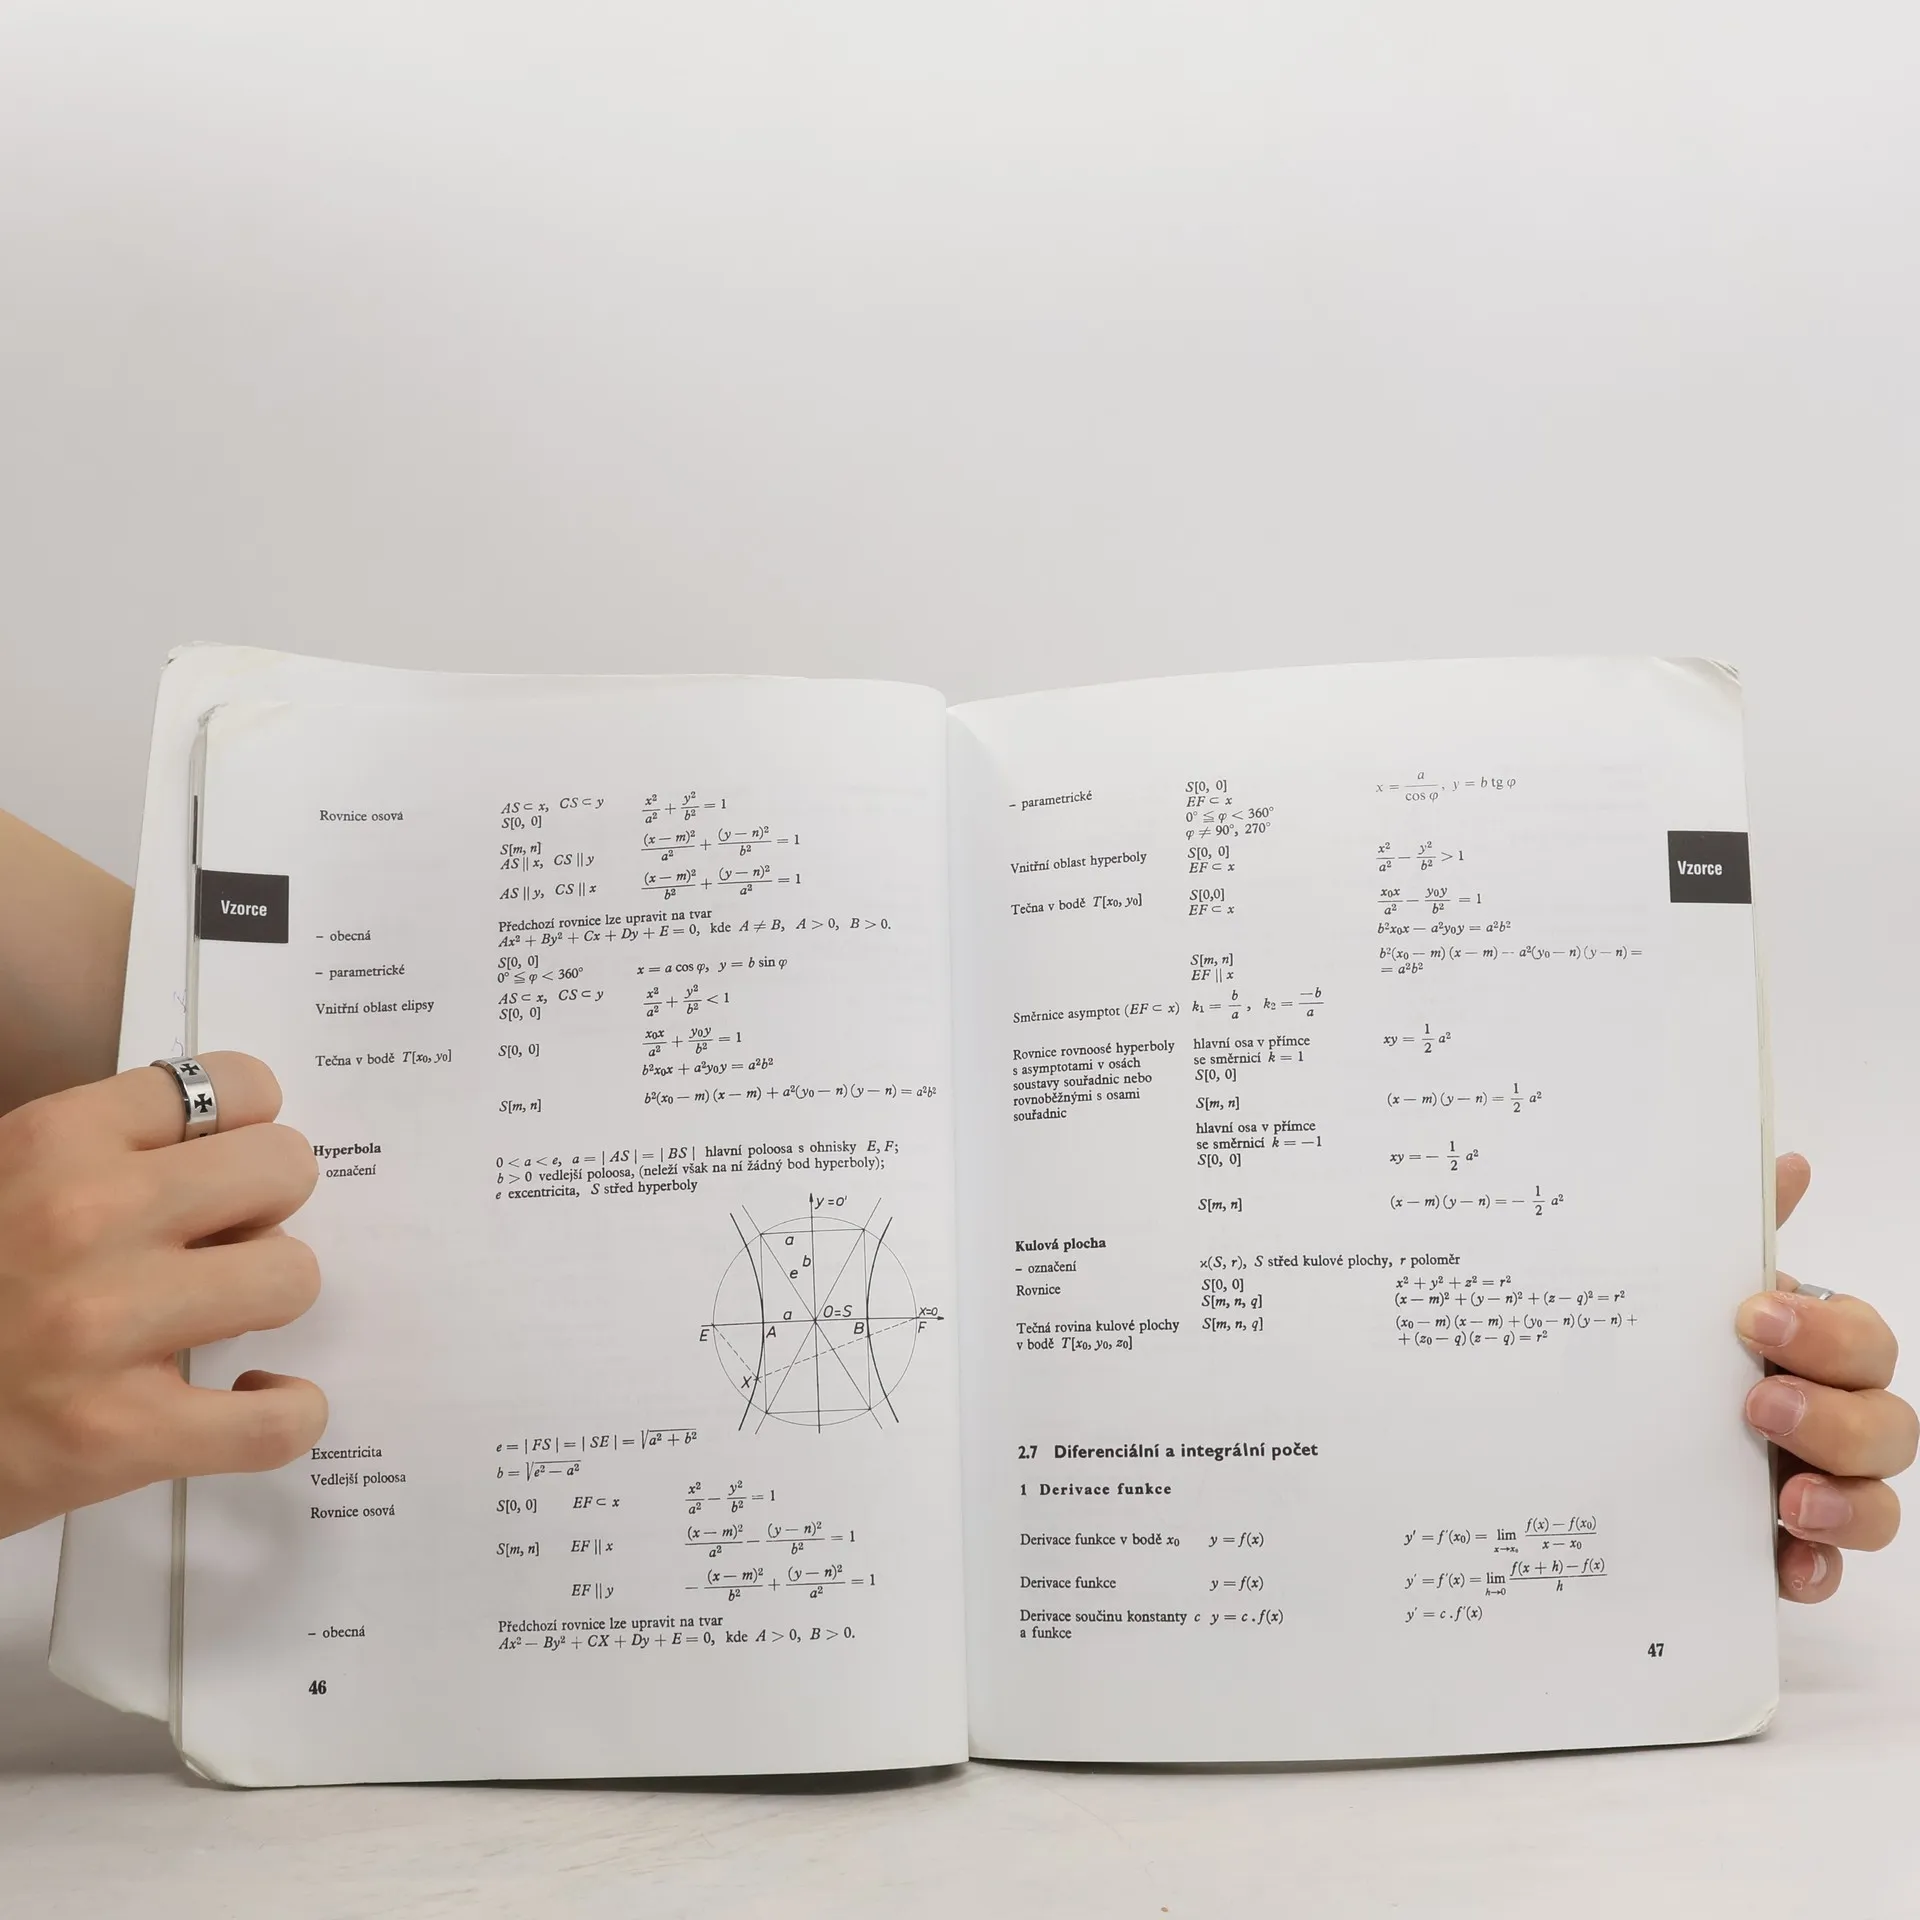 Rovnice osová AS ⊂ x, CS ⊂ y x²/a² + y²/b² = 1
S[0, 0]
S[m, n] (x — m)²/a² + (y — n)²/b² = 1
AS || x, CS || y
AS || y, CS || x (x — m)²/b² + (y — n)²/a² = 1
Vzorce
Předchozí rovnice lze upravit na tvar
– obecná Ax² + By² + Cx + Dy + E = 0, kde A ≠ B, A > 0, B > 0.
– parametrické S[0, 0]
0° ≦ φ < 360° x = a cos φ, y = b sin φ
Vnitřní oblast elipsy AS ⊂ x, CS ⊂ y x²/a² + y²/b² < 1
S[0, 0]
Tečna v bodě T[x₀, y₀] S[0, 0] x₀x/a² + y₀y/b² = 1
b²x₀x + a²y₀y = a²b²
S[m, n] b²(x₀ — m) (x — m) + a²(y₀ — n) (y — n) = a²b²
Hyperbola
– označení 0 < a < e, a = | AS | = | BS | hlavní poloosa s ohnisky E, F;
b > 0 vedlejší poloosa, (neleží však na ní žádný bod hyperboly);
e excentricita, S střed hyperboly
y=o'
a
b
e
a O=S x=o
E A B F
X
Excentricita e = | FS | = | SE | = √a² + b²
Vedlejší poloosa b = √e² — a²
Rovnice osová S[0, 0] EF ⊂ x x²/a² — y²/b² = 1
S[m, n] EF || x (x — m)²/a² — (y — n)²/b² = 1
EF || y — (x — m)²/b² + (y — n)²/a² = 1
Předchozí rovnice lze upravit na tvar
– obecná Ax² — By² + CX + Dy + E = 0, kde A > 0, B > 0.
46
– parametrické S[0, 0] x = a/cos φ, y = b tg φ
EF ⊂ x
0° ≦ φ < 360°
φ ≠ 90°, 270°
Vnitřní oblast hyperboly S[0, 0] x²/a² — y²/b² > 1
EF ⊂ x
Vzorce
Tečna v bodě T[x₀, y₀] S[0,0] x₀x/a² — y₀y/b² = 1
EF ⊂ x
b²x₀x — a²y₀y = a²b²
S[m, n] b²(x₀ — m) (x — m) — a²(y₀ — n) (y — n) =
EF || x = a²b²
Směrnice asymptot (EF ⊂ x) k₁ = b/a, k₂ = —b/a
Rovnice rovnoosé hyperboly hlavní osa v přímce xy = 1/2 a²
s asymptotami v osách se směrnicí k = 1
soustavy souřadnic nebo S[0, 0]
rovnoběžnými s osami S[m, n] (x — m) (y — n) = 1/2 a²
souřadnic
hlavní osa v přímce
se směrnicí k = —1
S[0, 0] xy = — 1/2 a²
S[m, n] (x — m) (y — n) = — 1/2 a²
Kulová plocha
– označení ϰ(S, r), S střed kulové plochy, r poloměr
Rovnice S[0, 0] x² + y² + z² = r²
S[m, n, q] (x — m)² + (y — n)² + (z — q)² = r²
Tečná rovina kulové plochy S[m, n, q] (x₀ — m) (x — m) + (y₀ — n) (y — n) +
v bodě T[x₀, y₀, z₀] + (z₀ — q) (z — q) = r²
2.7 Diferenciální a integrální počet
1 Derivace funkce
Derivace funkce v bodě x₀ y = f(x) y' = f'(x₀) = lim x→x₀ f(x) — f(x₀)/x — x₀
Derivace funkce y = f(x) y' = f'(x) = lim h→0 f(x + h) — f(x)/h
Derivace součinu konstanty c y = c . f(x) y' = c . f'(x)
a funkce
47